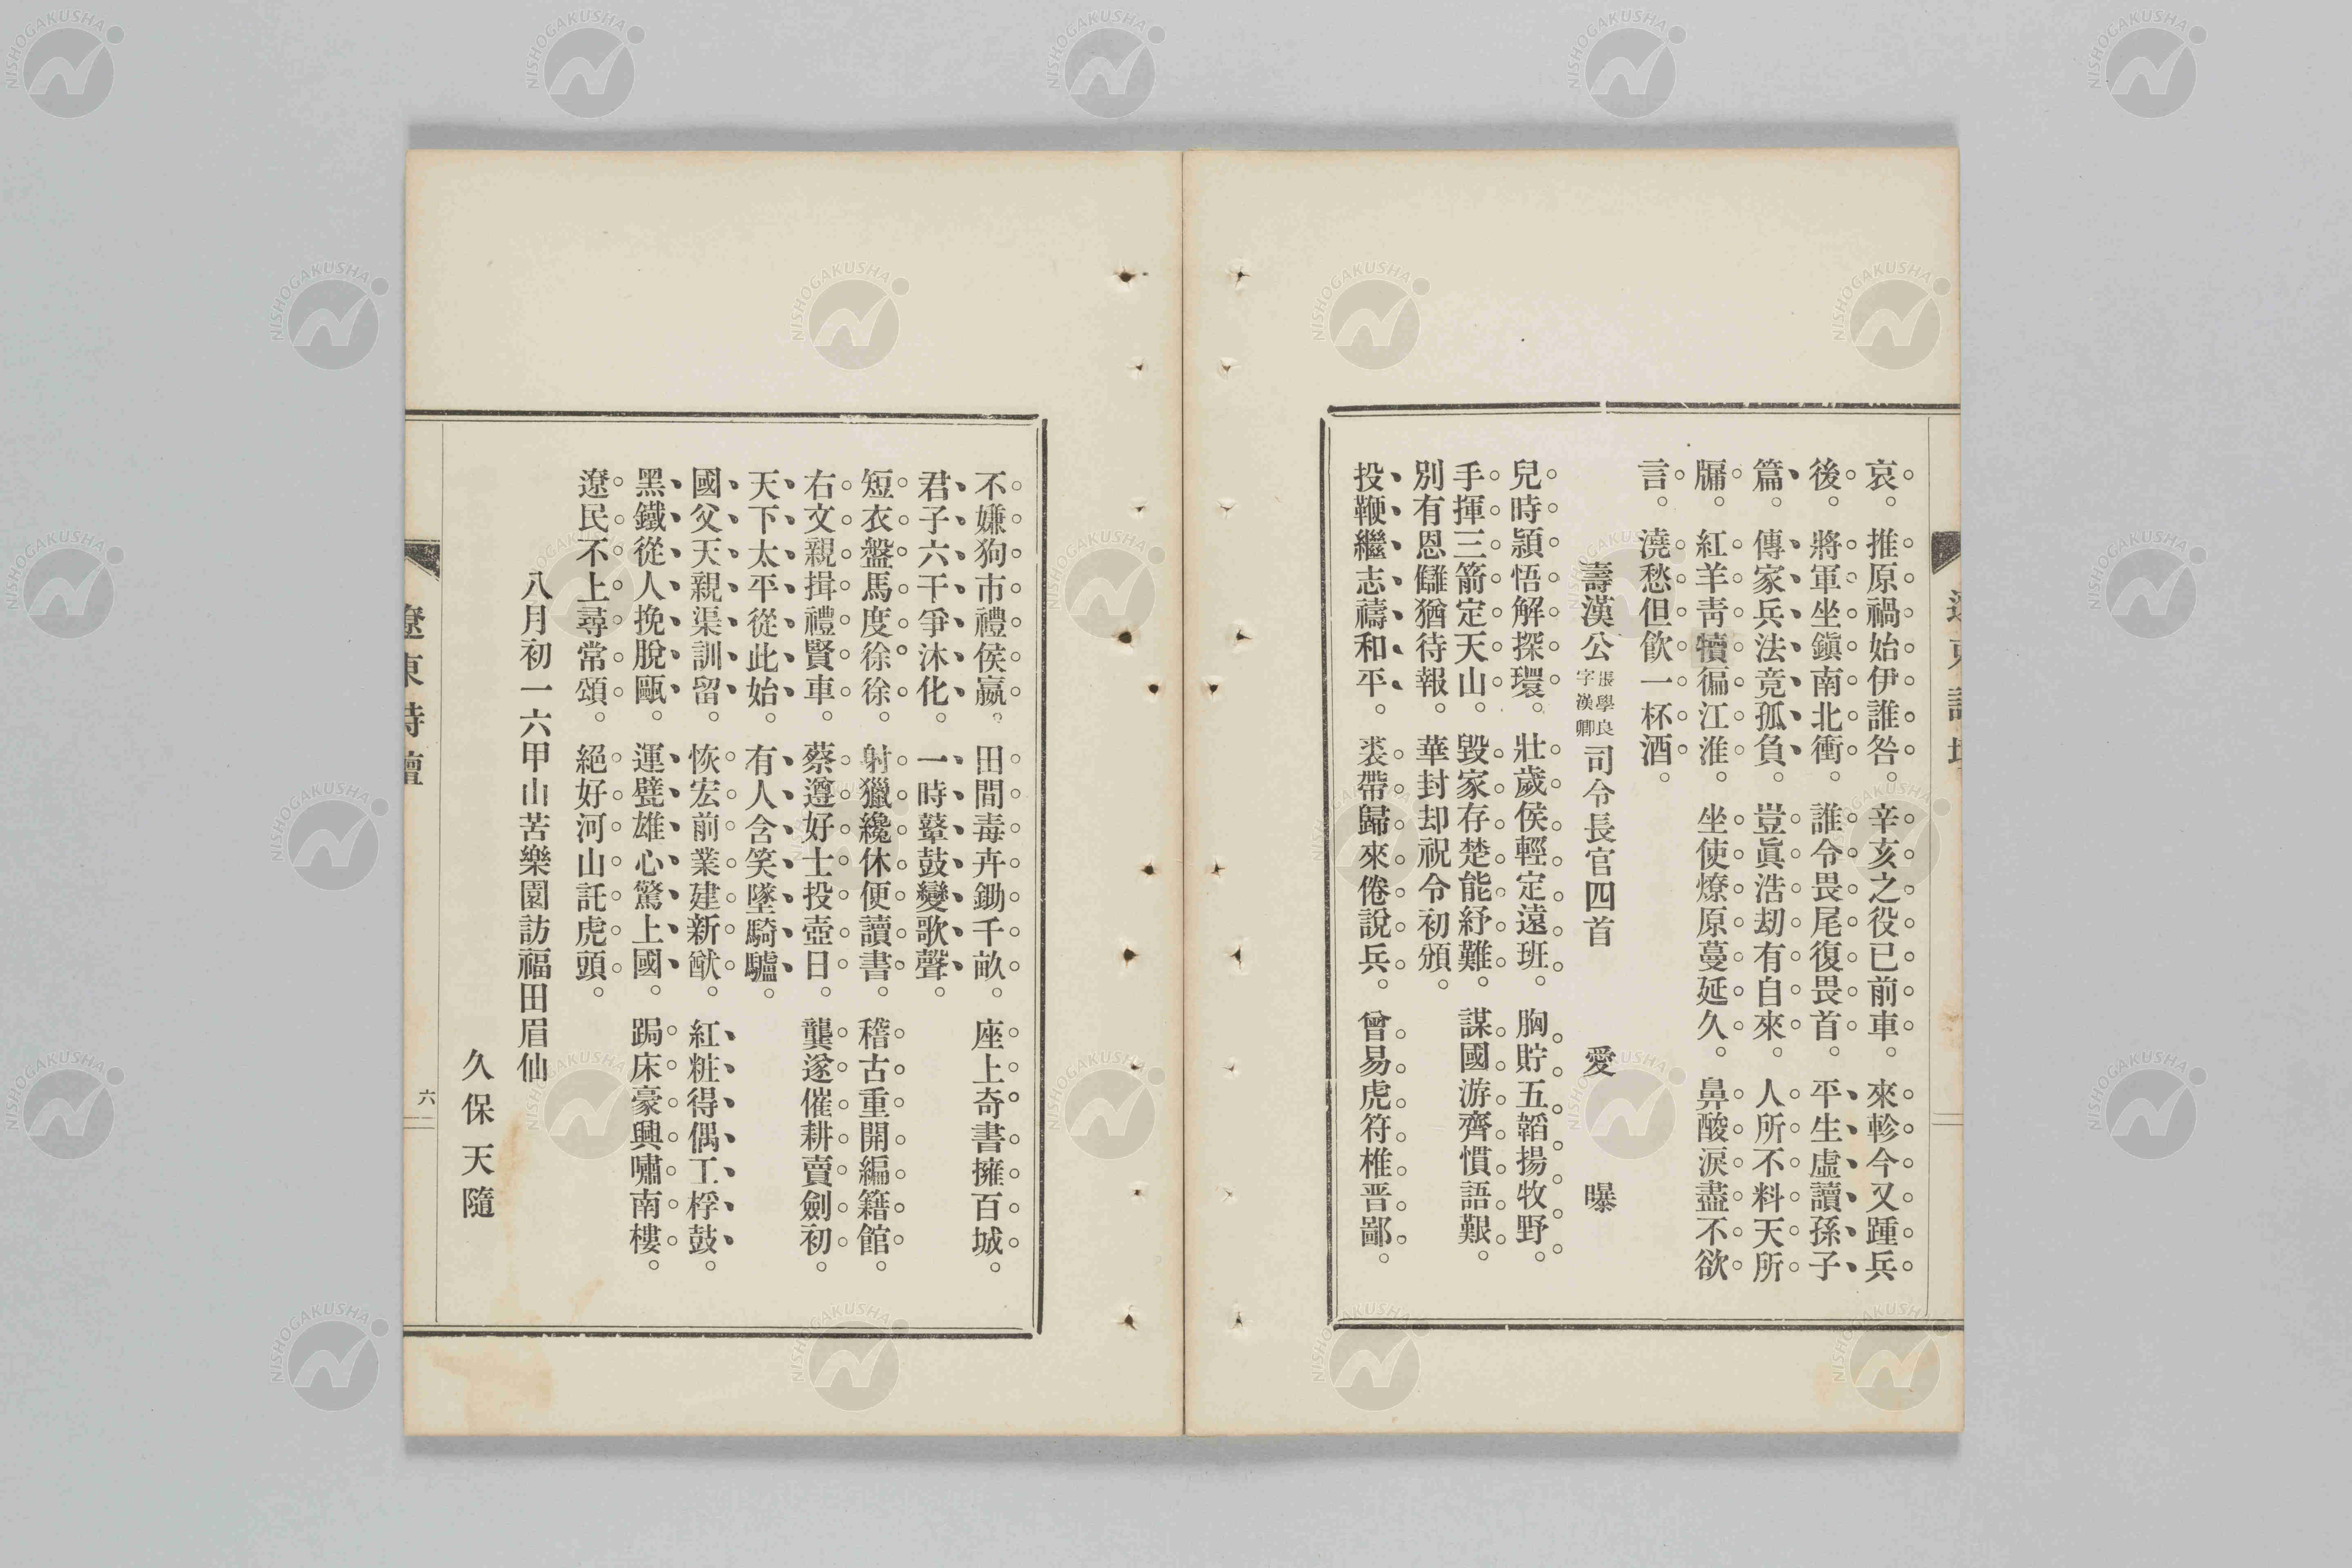 哀。推原禍始伊誰咎。辛亥之役已前車。來軫今又踵兵
後。將軍坐鎭南北衝。誰令畏尾復畏首。平生虛讀孫子
篇。傳家兵法竟孤負。豈眞浩刧有自來。人所不料天所
牖。紅羊靑犢徧江淮。坐使燎原蔓延久。鼻酸淚盡不欲
言。澆愁但飮一杯酒。
壽漢公張學良字漢卿司令長官四首　愛曝
兒時頴悟解探環。壯歲侯輕定遠班。胸貯五韜揚牧野。
手揮三箭定天山。毀家存楚能紓難。謀國游齊慣語艱。
別有恩讎猶待報。華封却祝令初頒。
投鞭繼志禱和平。裘帶歸來倦說兵。曾易虎符椎晋鄙。
不嫌狗市禮侯嬴。田間毒卉鋤千畝。座上奇書擁百城。
君子六千爭沐化。一時鼙鼓變歌聲。
短衣盤馬度徐徐。射獵纔休便讀書。稽古重開編籍館。
右文親揖禮賢車。蔡遵好士投壺日。龔遂催耕賣劍初。
天下太平從此始。有人含笑墜騎驢。
國父天親渠訓留。恢宏前業建新猷。紅粧得偶工桴鼓。
黑鐵從人挽脫甌。運甓雄心驚上國。踞床豪興嘯南樓。
遼民不上尋常頌。絕好河山託虎頭。
八月初一六甲山苦樂園訪福田眉仙
久保天隨
遼東詩壇
六
NISHOGAKUSHA